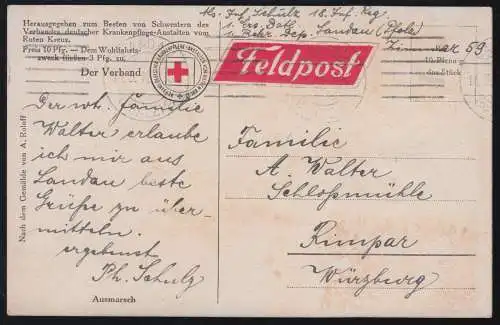 Herausgegeben zum Besten von Schwestern des
Verbandes deutscher Krankenpflege-Anstalten vom
Roten Kreuz.
Preis 10 Pfg. — Dem Wohlfahrts-
zweck fließen 3 Pfg. zu.
Der Verband
Inf. Schulz 18. Inf. Reg.
1. Ers. Batl.
Landau (Pfalz)
Zimmer 59
Feldpost
10 Pfennig
das Stück
Nach dem Gemälde von A. Roloff
Der wh. Familie
Walter erlaube
ich mir aus
Landau beste
Grüße zu über-
mitteln.
ergebenst
Ph. Schulz
Ausmarsch
Familie
A. Walter
Schloßmühle
Rimpar
Würzburg